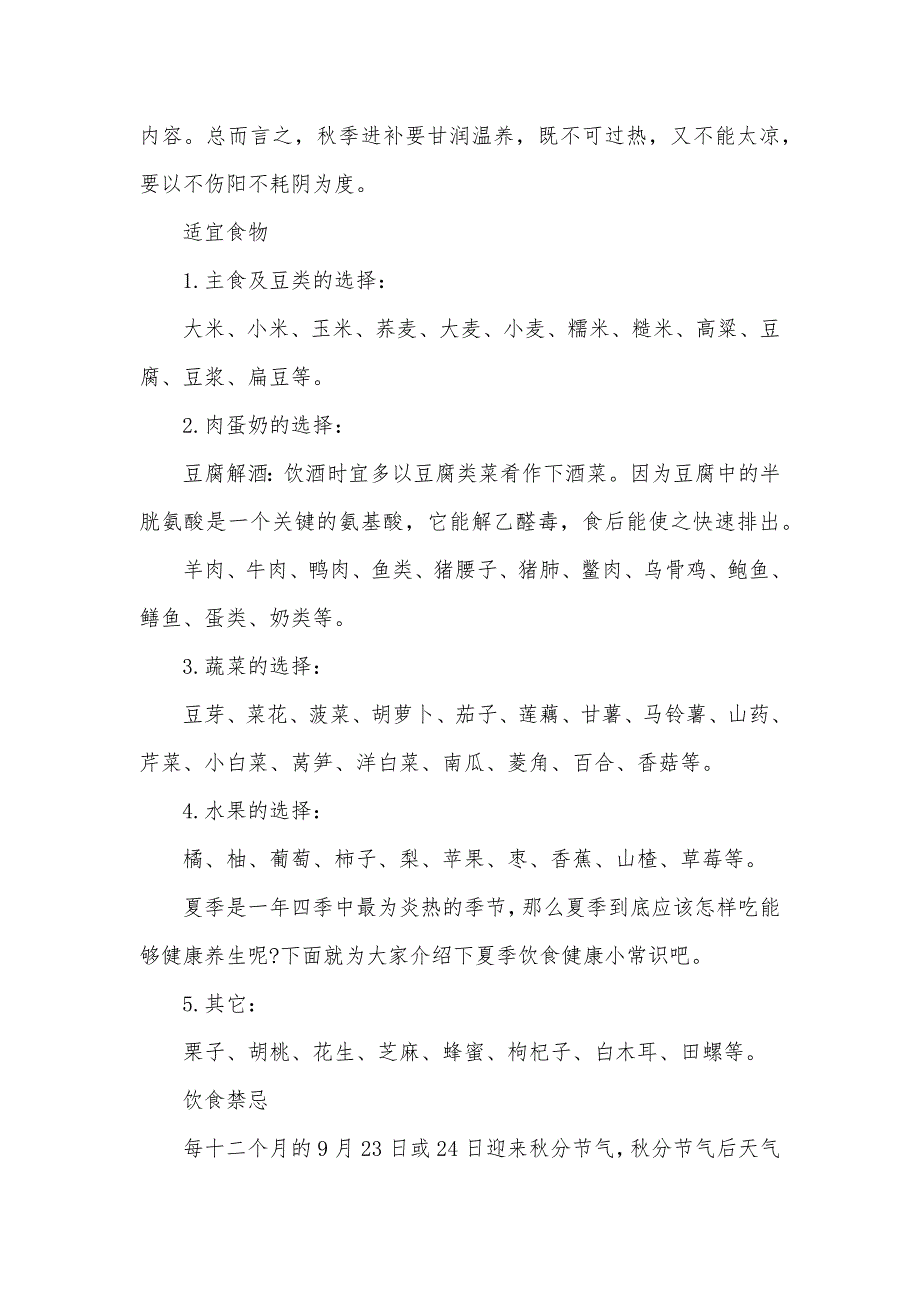 内容。总而言之，秋季进补要甘润温养，既不可过热，又不能太凉，
要以不伤阳不耗阴为度。
适宜食物
1.主食及豆类的选择：
大米、小米、玉米、荞麦、大麦、小麦、糯米、糙米、高粱、豆
腐、豆浆、扁豆等。
2.肉蛋奶的选择：
豆腐解酒：饮酒时宜多以豆腐类菜肴作下酒菜。因为豆腐中的半
胱氨酸是一个关键的氨基酸，它能解乙醛毒，食后能使之快速排出。
羊肉、牛肉、鸭肉、鱼类、猪腰子、猪肺、鳖肉、乌骨鸡、鲍鱼、
鳝鱼、蛋类、奶类等。
3.蔬菜的选择：
豆芽、菜花、菠菜、胡萝卜、茄子、莲藕、甘薯、马铃薯、山药、
芹菜、小白菜、莴笋、洋白菜、南瓜、菱角、百合、香菇等。
4.水果的选择：
橘、柚、葡萄、柿子、梨、苹果、枣、香蕉、山楂、草莓等。
夏季是一年四季中最为炎热的季节，那么夏季到底应该怎样吃能
够健康养生呢?下面就为大家介绍下夏季饮食健康小常识吧。
5.其它：
栗子、胡桃、花生、芝麻、蜂蜜、枸杞子、白木耳、田螺等。
饮食禁忌
每十二个月的9月23日或24日迎来秋分节气，秋分节气后天气